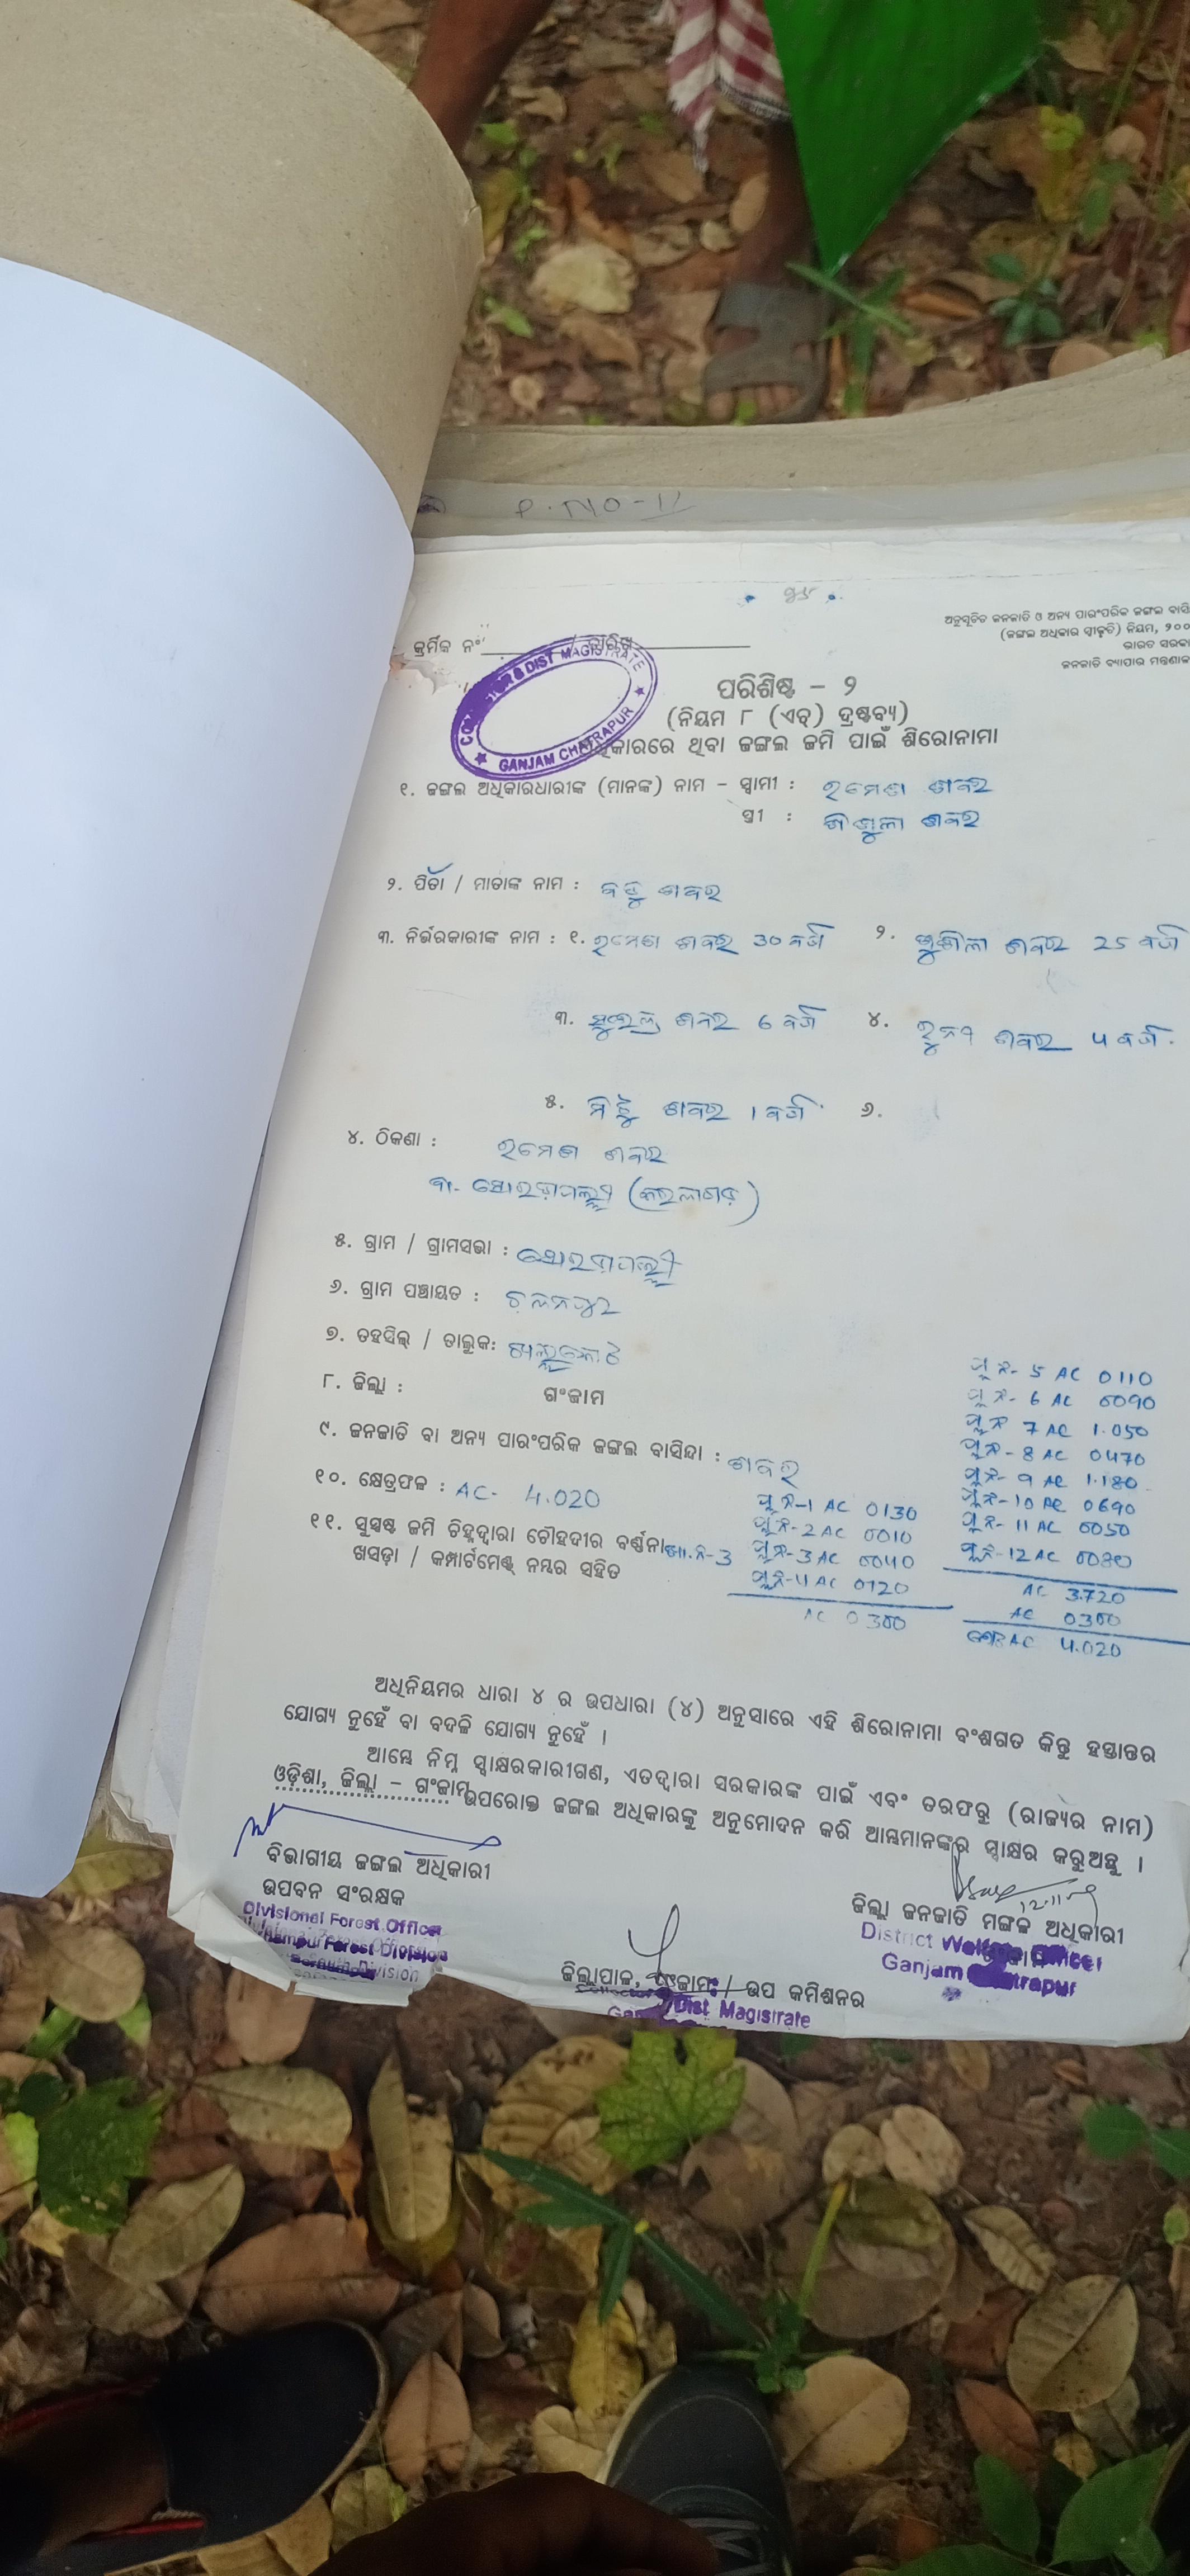 P. NO - 11
ଅନୁସୂଚିତ ଜନଜାତି ଓ ଅନ୍ୟ ପାରଂପରିକ ଜଙ୍ଗଲ ବାସି
(ଜଙ୍ଗଲ ଅଧିକାର ସ୍ୱୀକୃତି) ନିୟମ, ୨୦୦
ଭାରତ ସରକା
ଜନଜାତି ବ୍ୟାପାର ମନ୍ତ୍ରଣାଳ
କ୍ରମିକ ନଂ / ତାରିଖ
& DIST MAGISTRATE
GANJAM CHATRAPUR
ପରିଶିଷ୍ଟ - ୨
(ନିୟମ ୮ (ଏଚ୍) ଦ୍ରଷ୍ଟବ୍ୟ)
ଅଧିକାରରେ ଥିବା ଜଙ୍ଗଲ ଜମି ପାଇଁ ଶିରୋନାମା
୧. ଜଙ୍ଗଲ ଅଧିକାରଧାରୀଙ୍କ (ମାନଙ୍କ) ନାମ - ସ୍ୱାମୀ : ରମେଶ ଶବର
ସ୍ତ୍ରୀ : ଶବର
୨. ପିତା / ମାତାଙ୍କ ନାମ : ଶବର
୩. ନିର୍ଭରକାରୀଙ୍କ ନାମ : ୧. ରମେଶ ଶବର 30 ବର୍ଷ ୨. ସୁଶିଲା ଶବର 25 ବର୍ଷ
୩. ଶବର 6 ବର୍ଷ ୪. ଶବର 4 ବର୍ଷ
୫. ଶବର 1 ବର୍ଷ ୬.
୪. ଠିକଣା : ରମେଶ ଶବର
୫. ଗ୍ରାମ / ଗ୍ରାମସଭା :
୬. ଗ୍ରାମ ପଞ୍ଚାୟତ :
୭. ତହସିଲ୍ / ତାଲୁକ: ଖଲ୍ଲିକୋଟ
୮. ଜିଲ୍ଲା : ଗଂଜାମ
୯. ଜନଜାତି ବା ଅନ୍ୟ ପାରଂପରିକ ଜଙ୍ଗଲ ବାସିନ୍ଦା : ଶବର
୧୦. କ୍ଷେତ୍ରଫଳ : AC- 4.020
୧୧. ସୁସ୍ପଷ୍ଟ ଜମି ଚିହ୍ନଦ୍ୱାରା ଚୌହଦୀର ବର୍ଣ୍ଣନା
ଖସଡ଼ା / କମ୍ପାର୍ଟମେଣ୍ଟ ନମ୍ବର ସହିତ
ପ୍ଲ ନ-1 AC 0130
ପ୍ଲ ନ-2 AC 0010
ପ୍ଲ ନ-3 AC 0040
ପ୍ଲ ନ-4 AC 0120
AC 0300
ପ୍ଲ ନ- 5 AC 0110
ପ୍ଲ ନ- 6 AC 0090
ପ୍ଲ ନ 7 AC 1.050
ପ୍ଲ ନ- 8 AC 0470
ପ୍ଲ ନ- 9 AC 1.180
ପ୍ଲ ନ-10 AC 0690
ପ୍ଲ ନ- 11 AC 0050
ପ୍ଲ ନ-12 AC 0080
AC 3.720
AC 0300
AC 4.020
ଅଧିନିୟମର ଧାରା ୪ ର ଉପଧାରା (୪) ଅନୁସାରେ ଏହି ଶିରୋନାମା ବଂଶଗତ କିନ୍ତୁ ହସ୍ତାନ୍ତର
ଯୋଗ୍ୟ ନୁହେଁ ବା ବଦଳି ଯୋଗ୍ୟ ନୁହେଁ ।
ଆମ୍ଭେ ନିମ୍ନ ସ୍ୱାକ୍ଷରକାରୀଗଣ, ଏତଦ୍ୱାରା ସରକାରଙ୍କ ପାଇଁ ଏବଂ ତରଫରୁ (ରାଜ୍ୟର ନାମ)
ଓଡ଼ିଶା, ଜିଲ୍ଲା - ଗଂଜାମ ଉପରୋକ୍ତ ଜଙ୍ଗଲ ଅଧିକାରକୁ ଅନୁମୋଦନ କରି ଆମ୍ଭମାନଙ୍କର ସ୍ୱାକ୍ଷର କରୁଅଛୁ ।
ବିଭାଗୀୟ ଜଙ୍ଗଲ ଅଧିକାରୀ
ଉପବନ ସଂରକ୍ଷକ
Divisional Forest Officer
ଜିଲ୍ଲା ଜନଜାତି ମଙ୍ଗଳ ଅଧିକାରୀ
District Welfare Officer
Ganjam Chatrapur
ଜିଲ୍ଲାପାଳ, ଗଂଜାମ / ଉପ କମିଶନର
Dist Magistrate